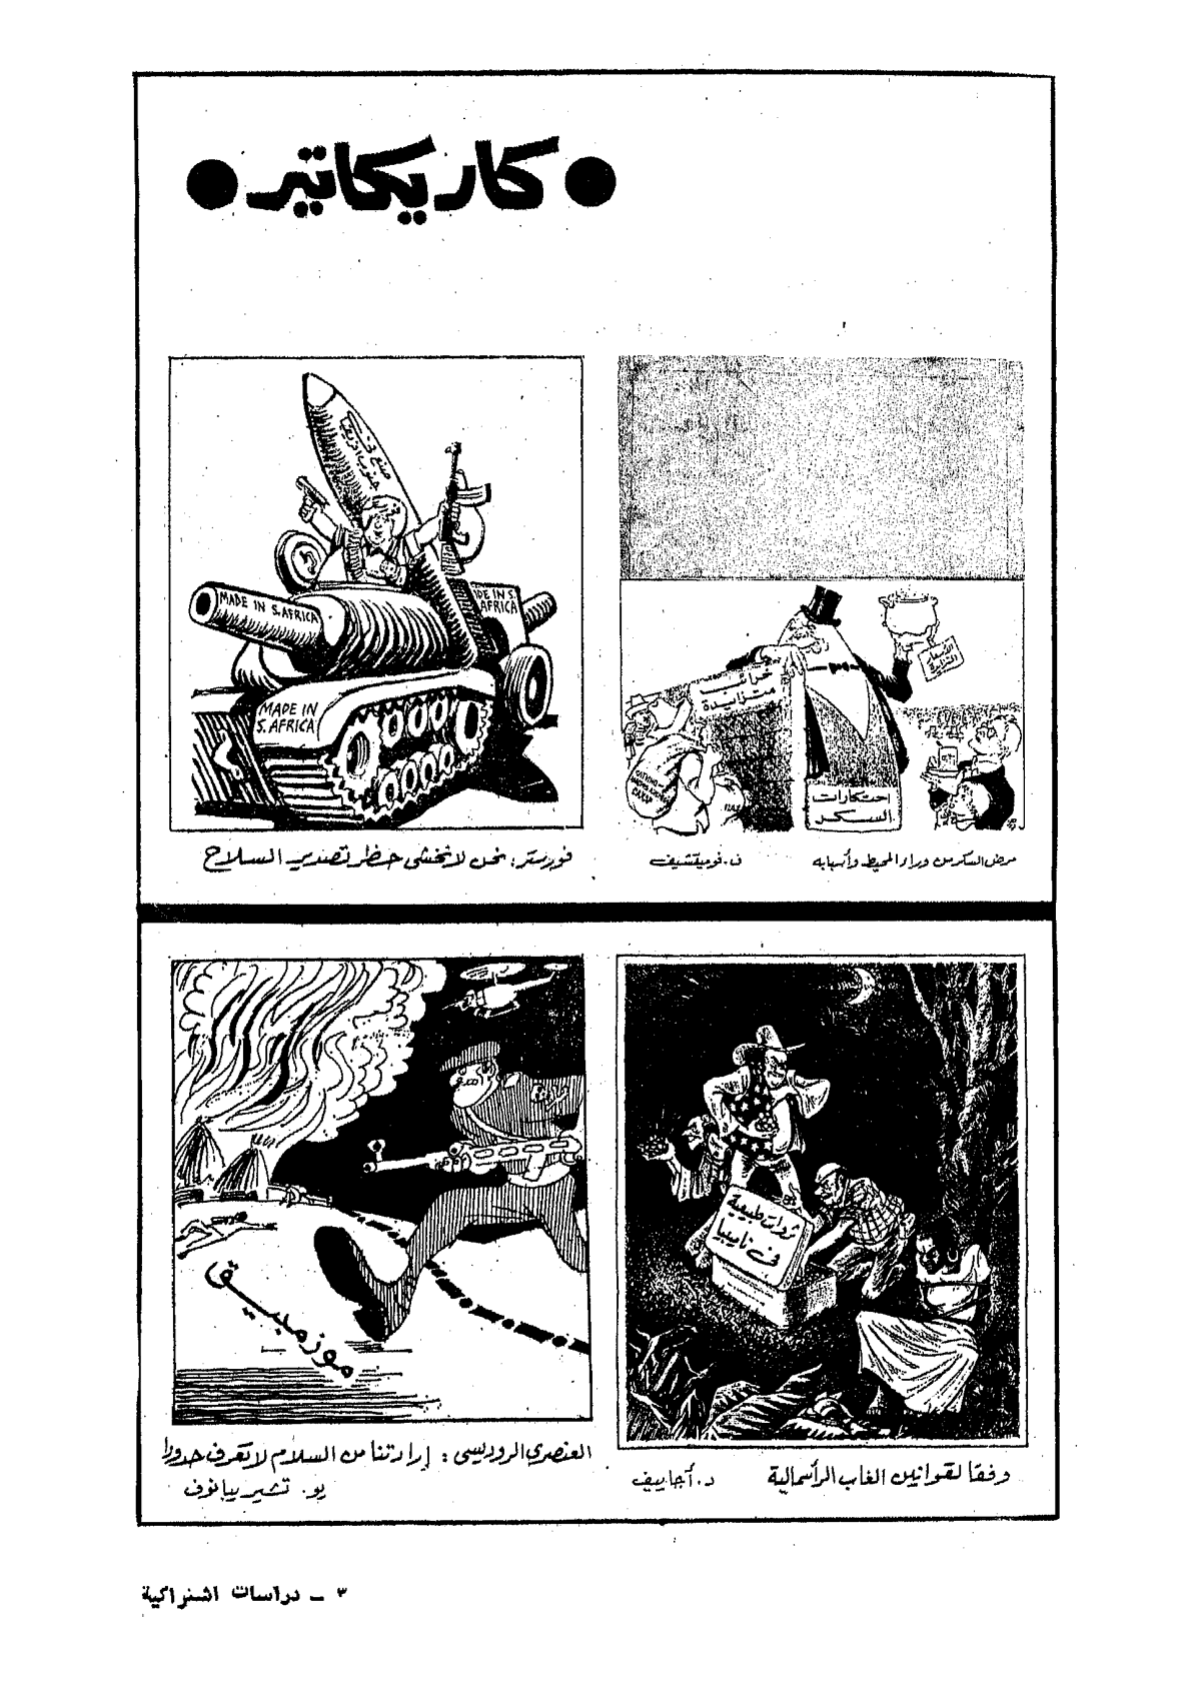 ● كاريكاتير ●
ضرائب
متزايدة
الأسعار
المتزايدة
احتكارات
السكر
مرض السكر من وراء المحيط وأسبابه
ف. فوميتشيف
صنع فى
جنوب افريقيا
MADE IN S. AFRICA
MADE IN S.
AFRICA
MADE IN
S. AFRICA
فورستر: نحن لا نخشى حظر تصدير السلاح
ثروات طبيعية
فى ناميبيا
وفقا لقوانين الغاب الرأسمالية
د. أجاييف
موزمبيق
العنصرى الروديسى: إرادتنا من السلام لا تعرف حدودا
يو. تشيريبانوف
٣ ــ دراسات اشتراكية